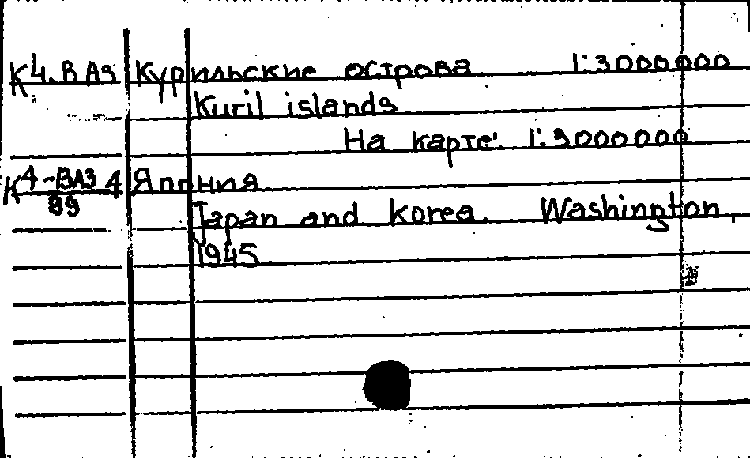 К4.ВАЯ Курильские острова 1:3000000
Kuril islands
На карте: 1:3000000
К 4-ВАЗ 4 Япония
99
Japan and Korea. Washington,
1945